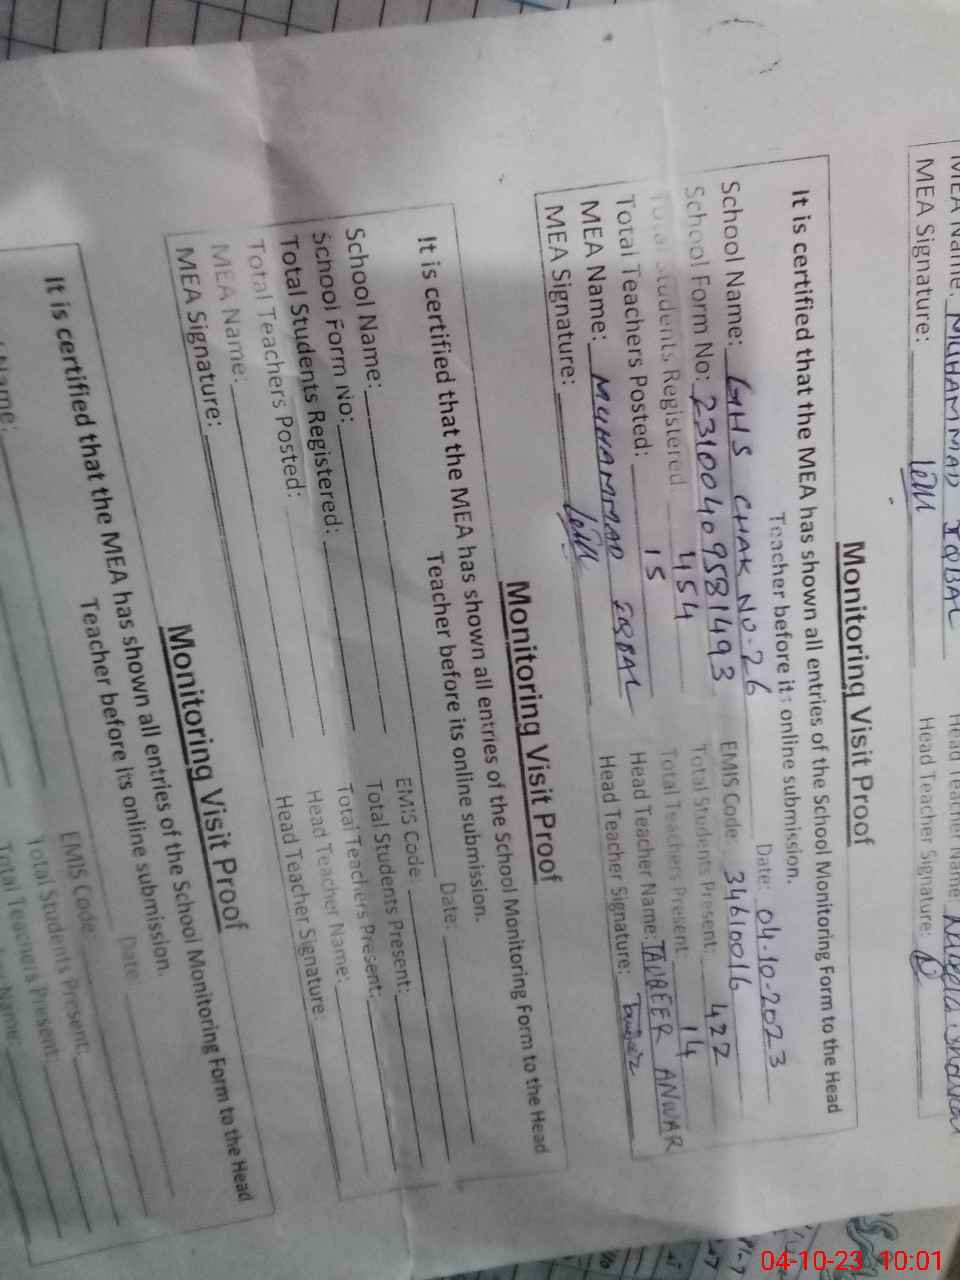 MEA Name: MUHAMMAD IQBAL Head Teacher Name:
MEA Signature: Head Teacher Signature:
Monitoring Visit Proof
It is certified that the MEA has shown all entries of the School Monitoring Form to the Head
Teacher before its online submission. Date: 04-10-2023
School Name: GHS CHAK NO. 26 EMIS Code: 34610016
School Form No: 23100409581493 Total Students Present: 422
Total Students Registered 454 Total Teachers Present: 14
Total Teachers Posted: 15 Head Teacher Name: TAUQEER ANWAR
MEA Name: MUHAMMAD IQBAL Head Teacher Signature:
MEA Signature:
Monitoring Visit Proof
It is certified that the MEA has shown all entries of the School Monitoring Form to the Head
Teacher before its online submission. Date:
School Name: EMIS Code:
School Form No: Total Students Present:
Total Students Registered: Total Teachers Present:
Total Teachers Posted: Head Teacher Name:
MEA Name: Head Teacher Signature:
MEA Signature:
Monitoring Visit Proof
It is certified that the MEA has shown all entries of the School Monitoring Form to the Head
Teacher before its online submission. Date
EMIS Code:
Name: Total Students Present:
Total Teachers Present:
Name:
04-10-23 10:01